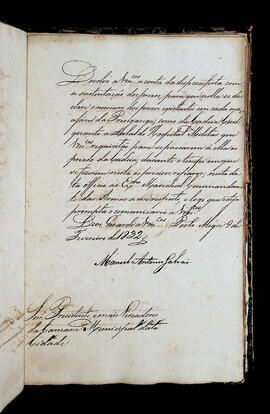 Devolvo a Vm.ces a conta da despesa feita com
a sustentação dos presos, para que nella se de-
clare o numero dos presos existentes em cada uma,
a fim da Presiganga, como da Cadeia Civil
quanto a Sala do Hospital Militar que
Vm.ces requisitão para se passarem a ella os
presos da Cadeia, durante o tempo em que
se fizer nesta os precisos reparos, nesta da-
ta officio ao Ex.mo Marechal Commandan-
te das Armas a este respeito, e logo que esteja
prompta o communicarei a Vm.ces
Deos Guarde a Vm.ces Porto Alegre 9 de
Fevereiro de 1832
Manoel Antonio Galvão
Snr. Presidente, e mais Vereadores
da Camara Municipal desta
Cidade